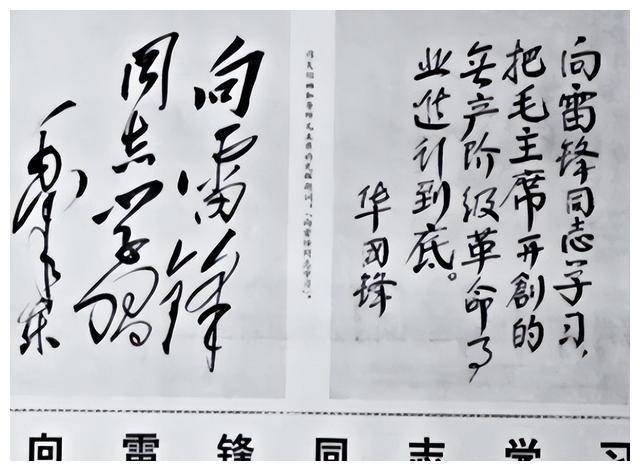 向雷锋同志学习,
把毛主席开創的
无产阶级革命事
业进行到底。
华国锋
向雷锋
同志学習
毛泽东
向雷锋同志学习